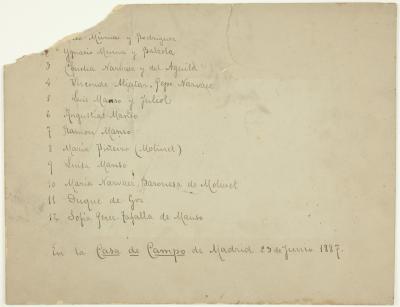 Munive y Rodriguez
2 Ygnacio Munive y
3 Condesa Narvaez y del Aguila
4 Vizconde Aliatar, Pepe Narvaez
5 Luis Manso y Juliol
6 Angustias Manso
7 Ramon Manso
8 Maria Piñeiro (Molinet)
9 Luisa Manso
10 Maria Narvaez, Baronesa de Molinet
11 Duque de Gor
12 Sofia Perez Tafalla de Manso
En la Casa de Campo de Madrid 23 de Junio 1887.